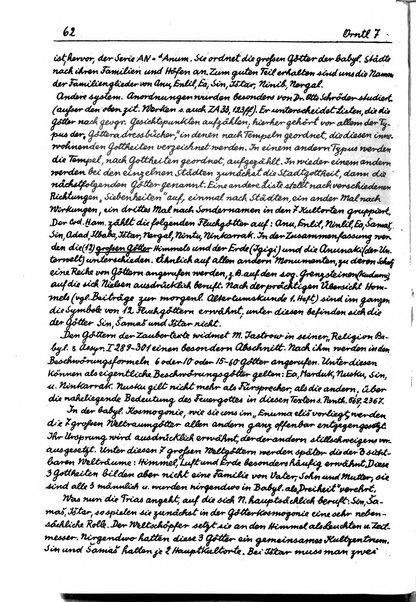 62 Orntl 7
ist, hervor, der Serie AN = ilu Anum. Sie ordnet die großen Götter der babyl. Städte
nach ihren Familien und Höfen an. Zum guten Teil erhalten sind uns die Namen
der Familienglieder von Anu, Enlil, Ea, Sin, Ištar, Ninib, Nergal.
Andere system. Anordnungen wurden besonders von Dr. Otto Schröder studiert
(außer den olen zit. Werken s. auch ZA 33, 123 ff.) Er unterscheidet Listen, die die
Götter nach gewissen Gesichtspunkten aufzählen, hierher gehört vor allem der Ty-
pus der „Götteradressbücher", in denen nach Tempeln geordnet, die diesen inne-
wohnenden Gottheiten verzeichnet werden. In einem andern Typus werden
die Tempel, nach Gottheiten geordnet, aufgezählt. In wieder einem andern
werden bei den einzelnen Städten zunächst die Stadtgottheit, dann die
nächstfolgenden Götter genannt. Eine andere Liste stellt nach verschiedenen
Richtungen „Siebenheiten" auf, einmal nach Städten, ein ander Mal nach
Wirkungen, ein drittes Mal nach Sondernamen in den 7 Kultorten gruppiert.
Der Cod. Ham. zählt die folgenden Fluchgötter auf: Anu, Enlil, Ninlil, Ea, Šamaš,
Sin, Adad, Ilbaba, Ištar, Nergal, Nintu, Ninkarrak. In der Zusammenfassung wer-
den die (12) großen Götter Himmels und der Erde (Igigi) und die Anunnaki (der Un-
terwelt) unterschieden. Ähnlich auf allen andern Monumenten, zu deren Schutz
eine Reihe von Göttern angerufen werden, z. B. auf den sog. Grenzsteinen (Kudurru)
auf die sich Nielsen ausdrücklich beruft. Nach der prächtigen Übersicht Hom-
mels (vgl. Beiträge zur morgenl. Altertumskunde 1. Heft) sind im ganzen
die Symbole von 12 Fluchgöttern erwähnt, unter diesen befinden sich die
der Götter Sin, Šamaš und Ištar nicht.
Den Göttern der Zaubertexte widmet M. Jastrow in seiner „Religion Ba-
byl. s u. Assyr. I 289-301 einen besondern Abschnitt. Nach ihm werden in den
Beschwörungsformeln 6 oder 10 oder 15-60 Götter angerufen. Unter diesen
können als eigentliche Beschwörungsgötter gelten: Ea, Marduk, Nusku, Sin,
u. Ninkarrak. Nusku gilt nicht mehr als Fürsprecher, als die andern. über
die naheliegende Bedeutung des Feuergottes in diesen Texten s. Panth. 868, 2367.
In der babyl. Kosmogonie, wie sie uns im „Enuma eliš vorliegt, werden
die 7 großen Weltraumgötter allen andern ganz offenbar entgegengesetzt.
Ihr Ursprung wird ausdrücklich erwähnt, der der andern stillschweigens vor-
ausgesetzt. Unter diesen 7 großen Weltgöttern werden später die der 3 sicht-
baren Welträume: Himmel, Luft und Erde besonders häufig erwähnt. Diese
3 Gottheiten bilden aber nicht eine Familie von Vater, Sohn und Mutter, sie
sind alle 3 männlich u. wurden nirgendwo in Babyl. als Dreiheit verehrt.
Was nun die Trias angeht, auf die sich N. hauptsächlich beruft: Sin, Ša-
maš, Ištar, so spielen sie zunächst in der Götterkosmogonie eine sehr neben-
sächliche Rolle. Der Weltschöpfer setzt sie an den Himmel als Leuchten u. Zeit-
messer. Nirgendwo hatten diese 3 Götter ein gemeinsames Kultzentrum.
Sin und Šamaš hatten je 2 Hauptkultorte. Bei Ištar muss man zwei